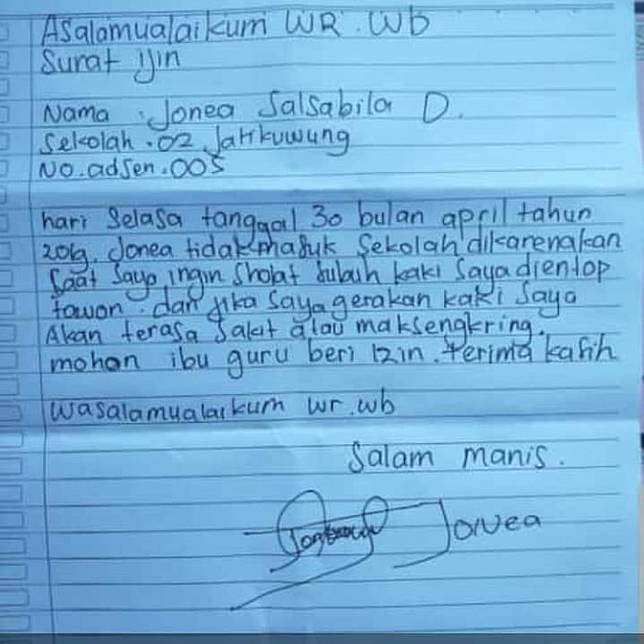 Asalamualaikum WR. Wb
Surat ijin
Nama : Jonea Salsabila D.
Sekolah . 02 Jatikuwung
No. adsen . 005
hari Selasa tanggal 30 bulan april tahun
2019. Jonea tidak masuk Sekolah dikarenakan
Saat Saya ingin Sholat Subuh kaki Saya dientop
tawon. dan jika Saya gerakan kaki Saya
Akan terasa Sakit atau maksengkring.
mohon ibu guru beri izin. terima kasih
Wasalamualaikum Wr. wb
Salam manis.
Jonea